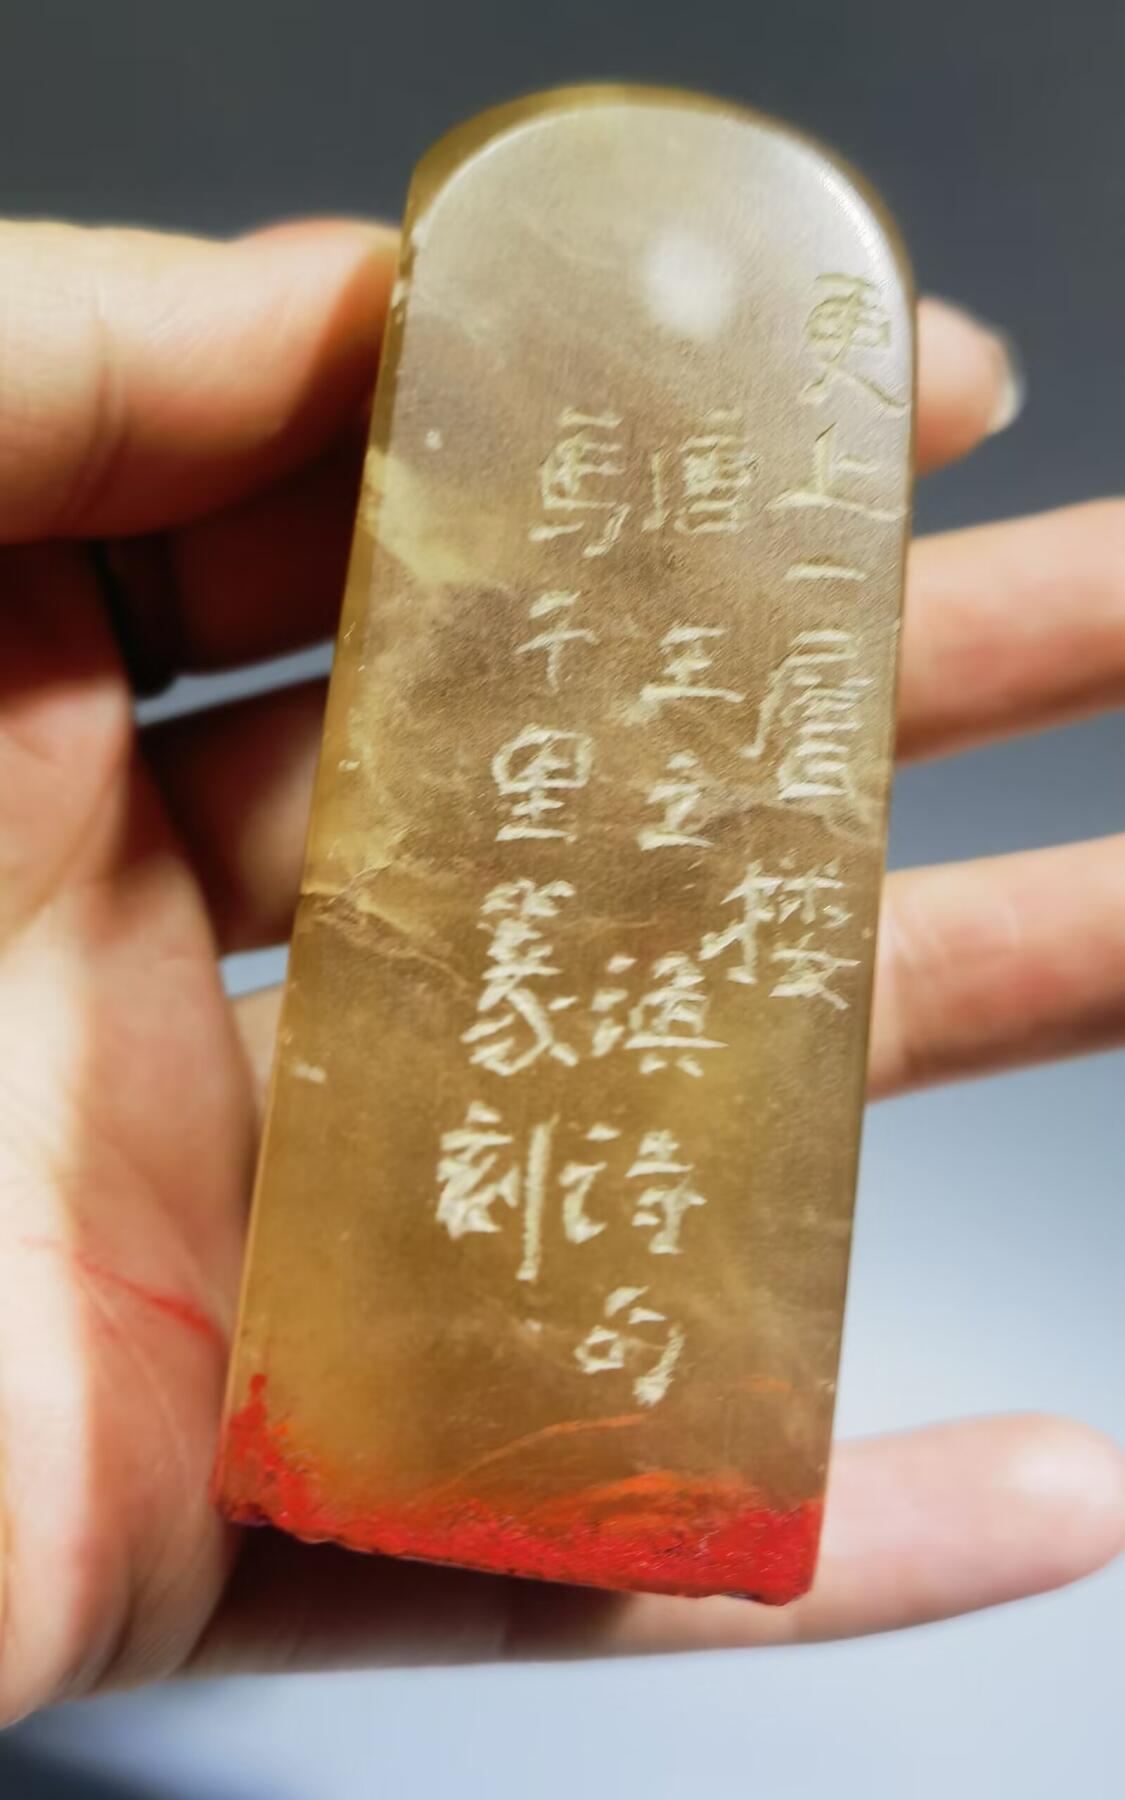 更上一層樓
唐王之渙詩句
馬千里篆刻